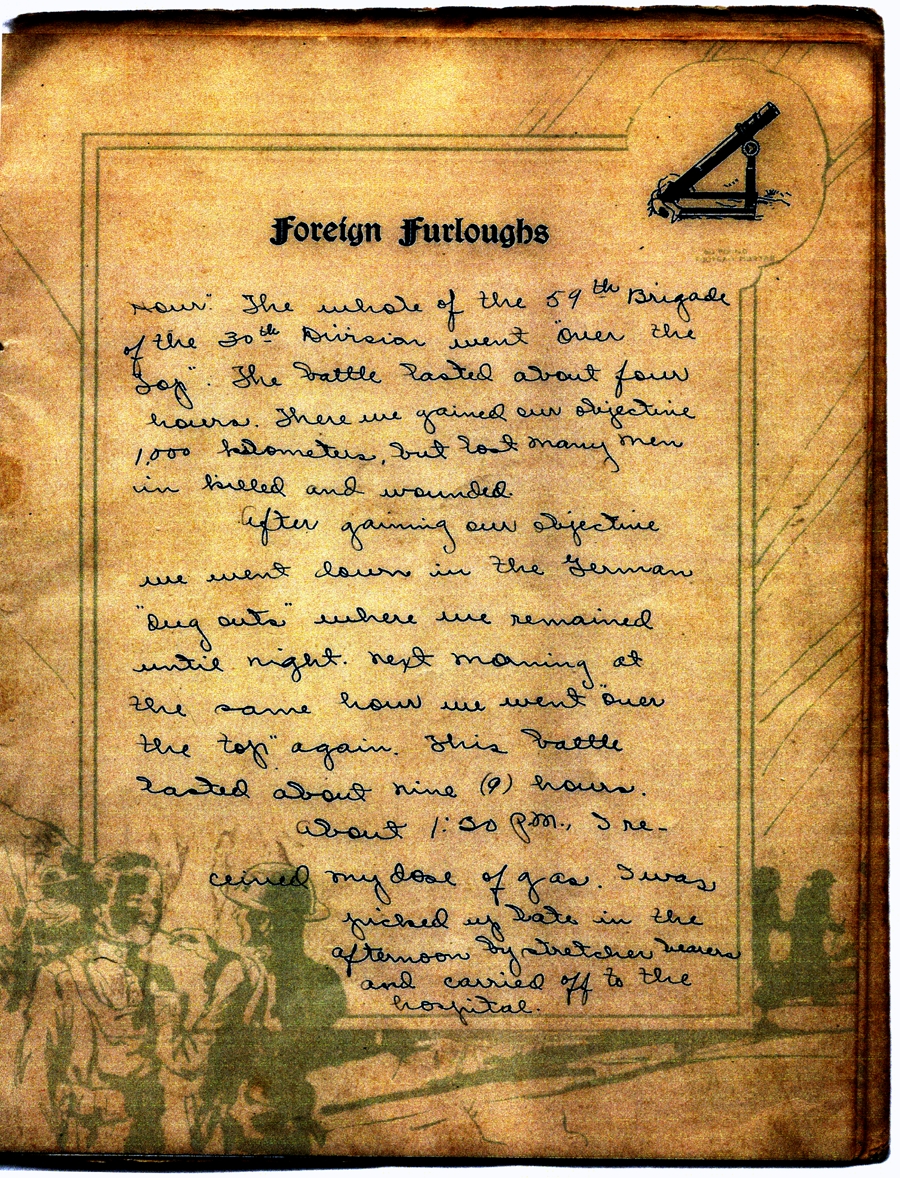 Foreign Furloughs
Hour". The whole of the 59th Brigade
of the 30th Division went "over the
Top". The battle lasted about four
hours. There we gained our objective
1,000 kilometers, but lost many men
in killed and wounded.
After gaining our objective
we went down in the German
"dug outs" where we remained
until night. Next morning at
the same hour we went "over
the top" again. This battle
lasted about nine (9) hours.
About 1:30 P.M., I re-
ceived my dose of gas. I was
picked up late in the
afternoon by stretcher bearers
and carried off to the
hospital.